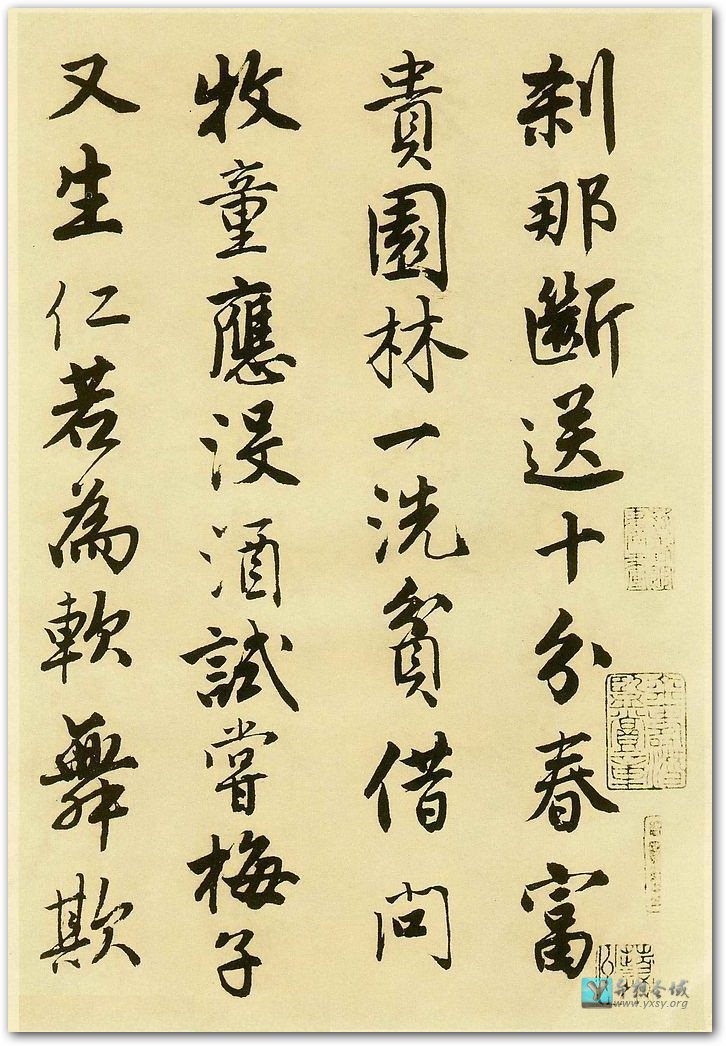 刹那斷送十分春富
貴園林一洗貧借問
牧童應没酒試嘗梅子
又生仁若為軟舞欺
www.yxsy.org